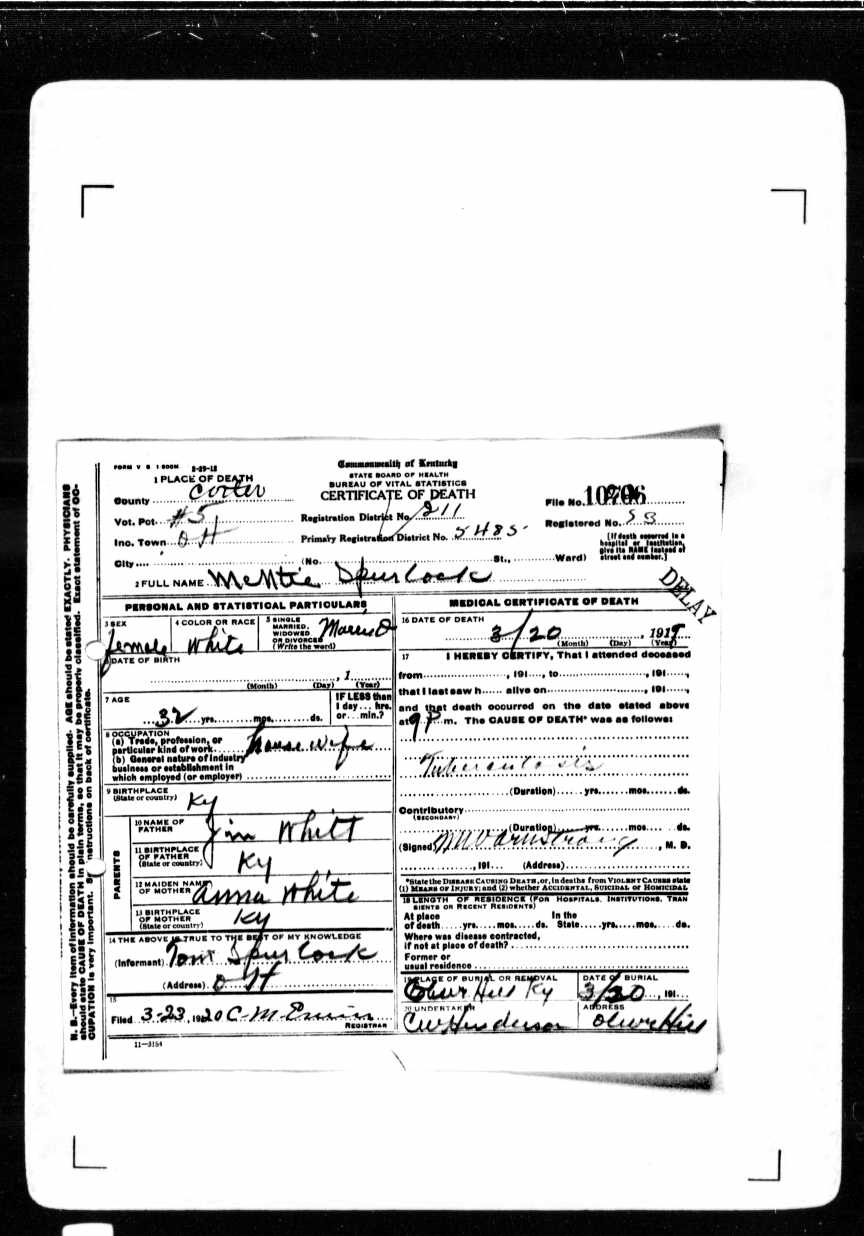 FORM V S 1 500M 2-29-12
Commonwealth of Kentucky
STATE BOARD OF HEALTH
BUREAU OF VITAL STATISTICS
CERTIFICATE OF DEATH
1 PLACE OF DEATH
County Carter
Vot. Pct. #5
Inc. Town O H
City
Registration District No. 211
Primary Registration District No. 5485
(No. St., Ward)
File No. 10706
Registered No. 53
[If death occurred in a hospital or institution, give its NAME instead of street and number.]
2 FULL NAME Spurlock
DELAY
PERSONAL AND STATISTICAL PARTICULARS
3 SEX female
4 COLOR OR RACE White
5 SINGLE MARRIED, WIDOWED OR DIVORCED (Write the word)
DATE OF BIRTH
, 1
(Month) (Day) (Year)
7 AGE
32 yrs. mos. ds.
IF LESS than 1 day... hrs. or... min.?
8 OCCUPATION
(a) Trade, profession, or particular kind of work house wife
(b) General nature of industry business or establishment in which employed (or employer)
9 BIRTHPLACE (State or country) Ky
PARENTS
10 NAME OF FATHER Jim Whitt
11 BIRTHPLACE OF FATHER (State or country) Ky
12 MAIDEN NAME OF MOTHER Anna White
13 BIRTHPLACE OF MOTHER (State or country) Ky
14 THE ABOVE IS TRUE TO THE BEST OF MY KNOWLEDGE
(Informant) Tom Spurlock
(Address) O H
15
Filed 3-23, 1920 C-M-Erwin
REGISTRAR
11—3184
MEDICAL CERTIFICATE OF DEATH
16 DATE OF DEATH
3/20, 191
(Month) (Day) (Year)
17 I HEREBY CERTIFY, That I attended deceased
from , 191 , to , 191 ,
that I last saw h alive on , 191 ,
and that death occurred on the date stated above
at 9 P m. The CAUSE OF DEATH* was as follows:
Tuberculosis
(Duration) yrs. mos. ds.
Contributory
(SECONDARY)
(Duration) yrs. mos. ds.
(Signed) Armstrong, M. D.
, 191 (Address)
*State the DISEASE CAUSING DEATH, or, in deaths from VIOLENT CAUSES state (1) MEANS OF INJURY; and (2) whether ACCIDENTAL, SUICIDAL OR HOMICIDAL
18 LENGTH OF RESIDENCE (FOR HOSPITALS, INSTITUTIONS, TRANSIENTS OR RECENT RESIDENTS)
At place of death yrs. mos. ds. In the State yrs. mos. ds.
Where was disease contracted, if not at place of death?
Former or usual residence
19 PLACE OF BURIAL OR REMOVAL Olive Hill Ky
DATE OF BURIAL 3/20, 191
20 UNDERTAKER CW Henderson
ADDRESS Olive Hill
N. B.—Every item of information should be carefully supplied. AGE should be stated EXACTLY. PHYSICIANS
should state CAUSE OF DEATH in plain terms, so that it may be properly classified. Exact statement of OC-
CUPATION is very important. See instructions on back of certificate.